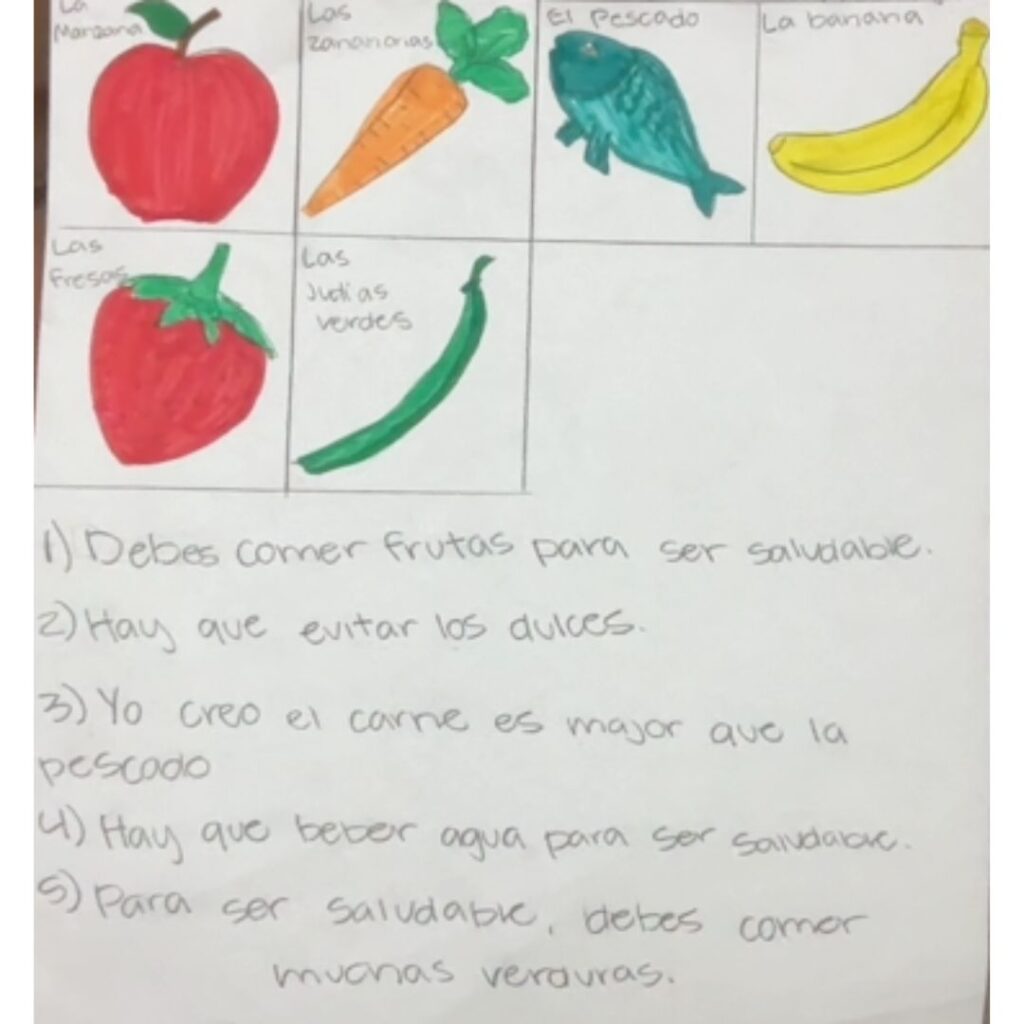 La
Manzana
Las
zanahorias
El Pescado
La banana
Las
Fresas
Las
Judias
verdes
1) Debes comer frutas para ser saludable.
2) Hay que evitar los dulces.
3) Yo creo el carne es major que la
pescado
4) Hay que beber agua para ser saludable.
5) Para ser saludable, debes comer
muchas verduras.